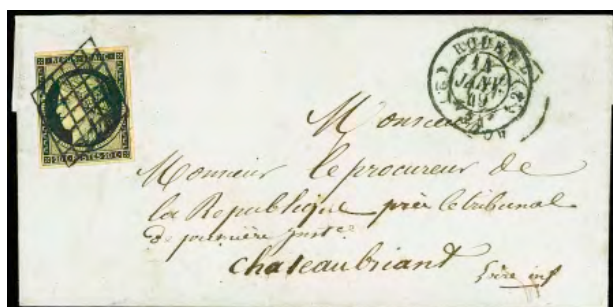 REPUB FRANC
20 C POSTES 20 C
RODEZ
14
JANV.
49
Monsieur
Monsieur le procureur de
la Republique près le tribunal
de première inst.ce
chateaubriant
Loire inf